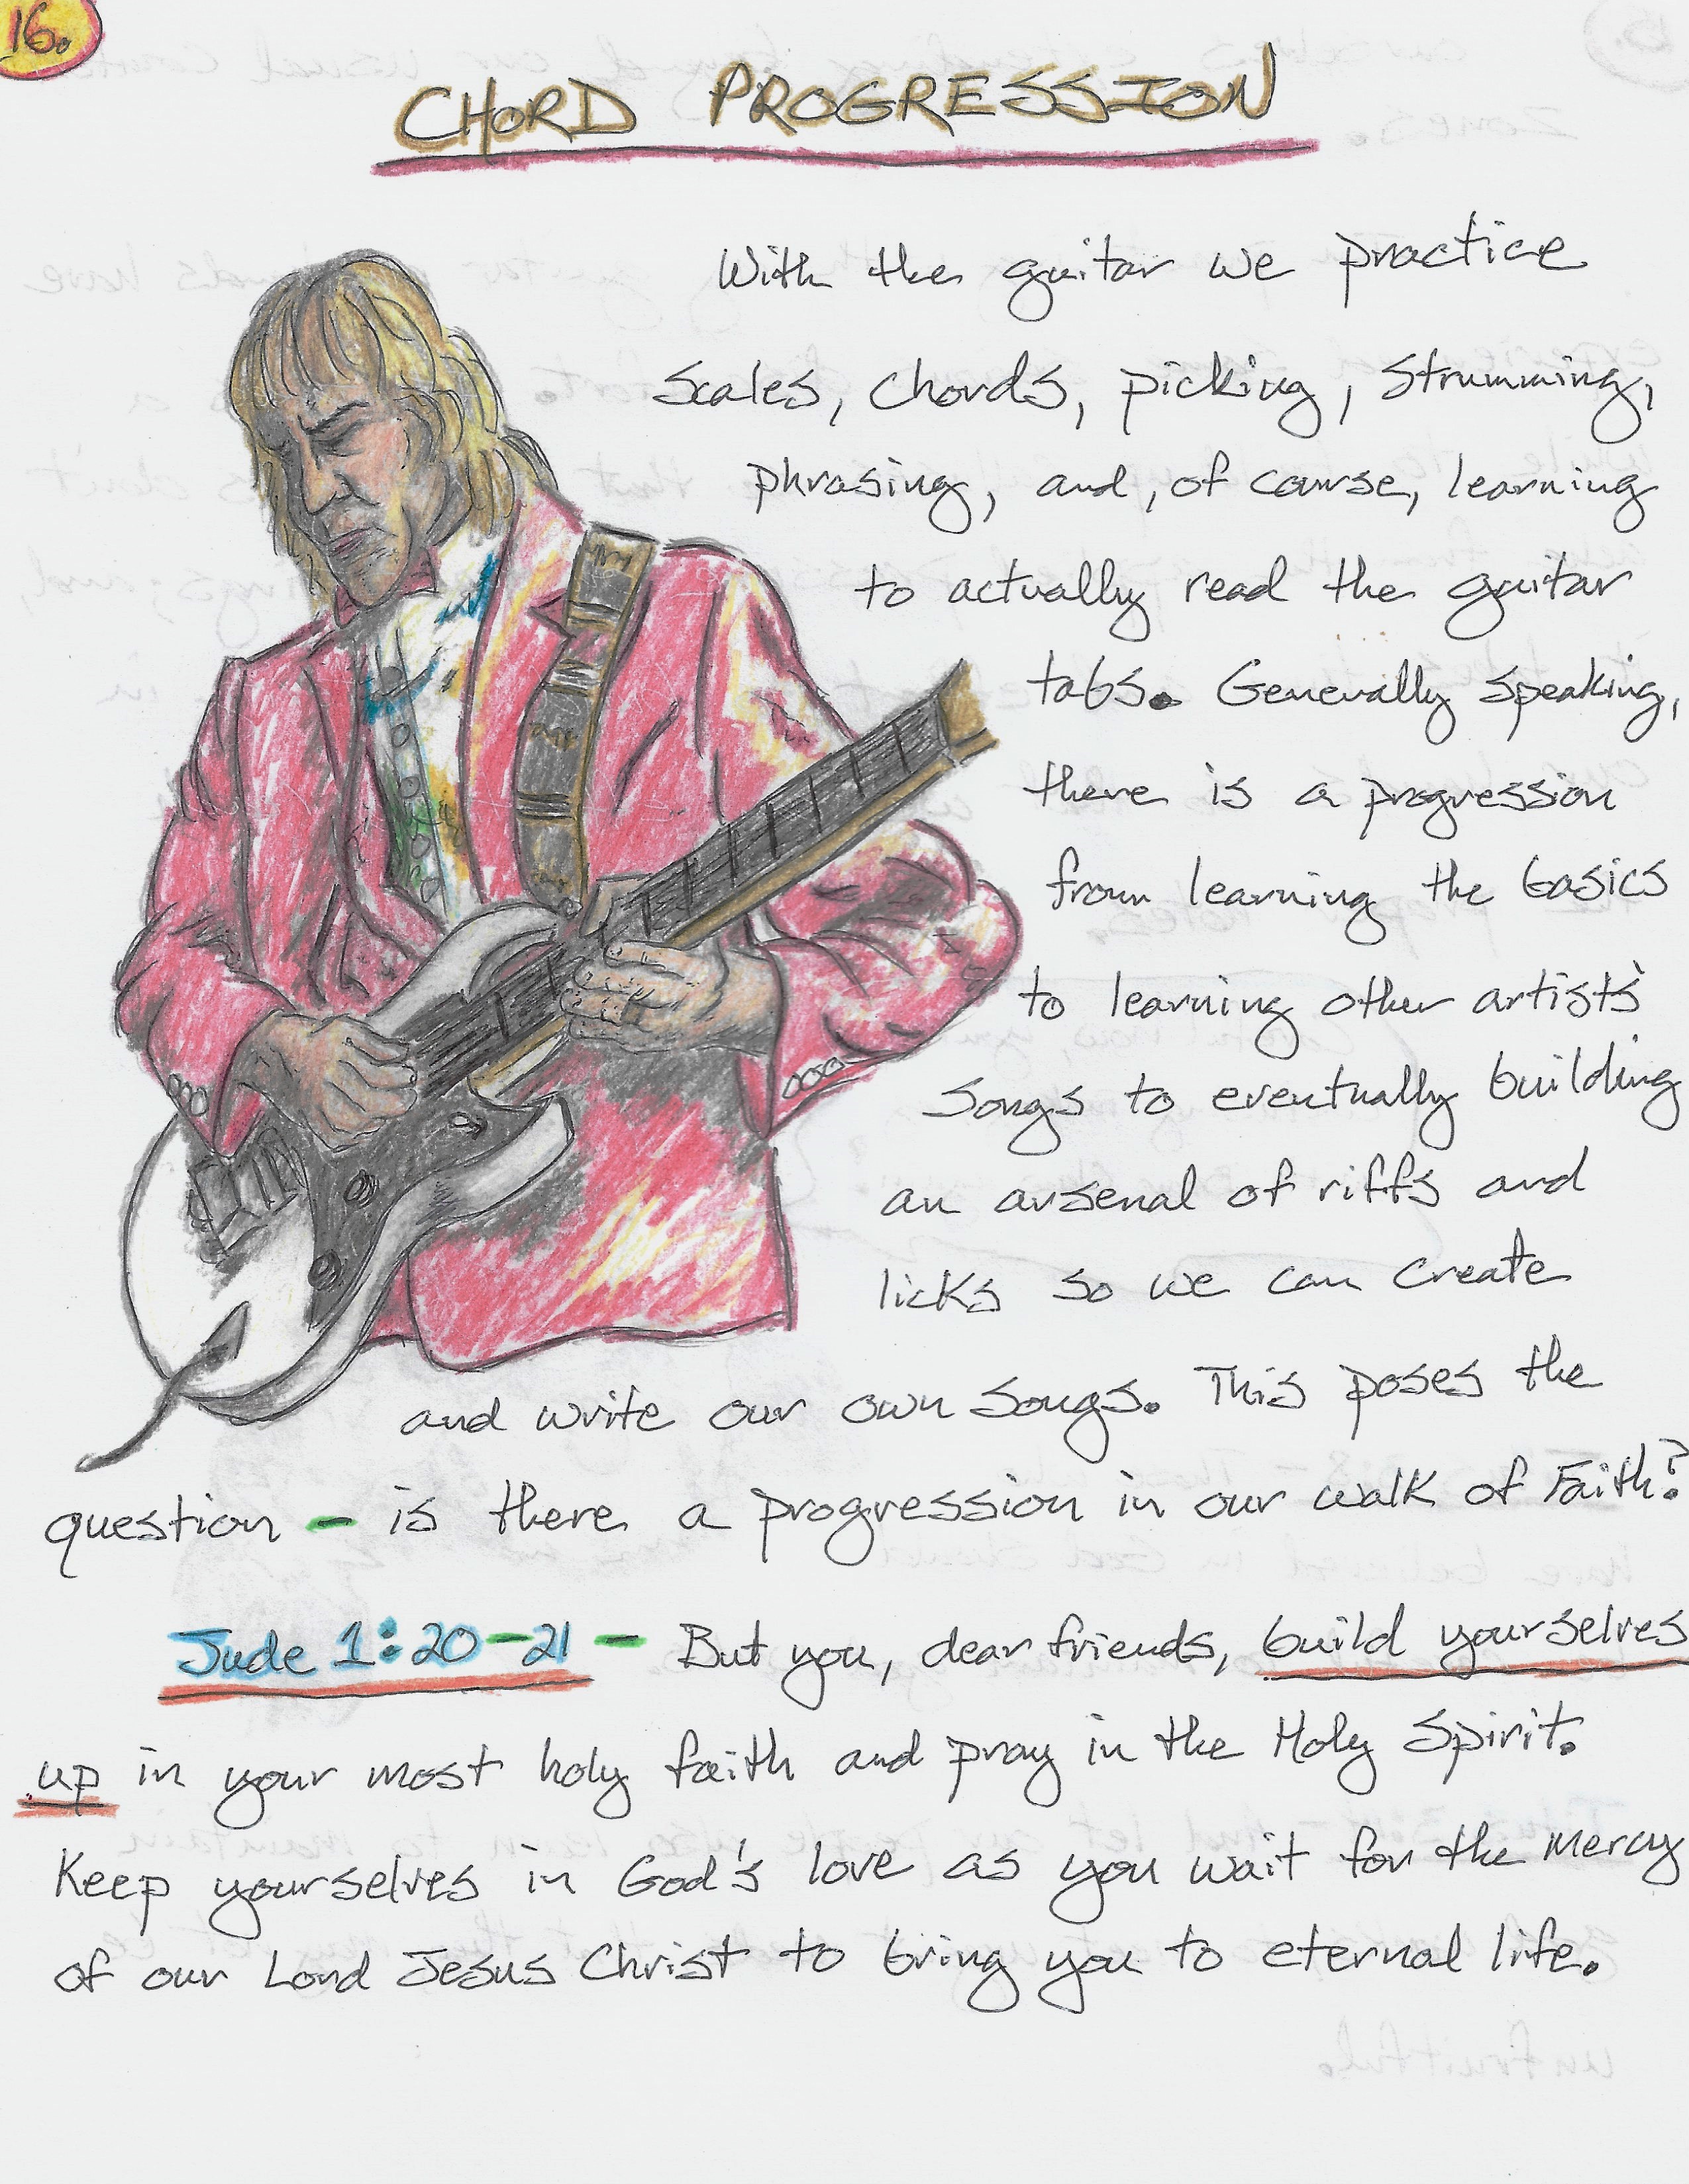 16.
CHORD PROGRESSION
With the guitar we practice
scales, chords, picking, strumming,
phrasing, and, of course, learning
to actually read the guitar
tabs. Generally speaking,
there is a progression
from learning the basics
to learning other artists'
songs to eventually building
an arsenal of riffs and
licks so we can create
and write our own songs. This poses the
question - is there a progression in our walk of Faith?
Jude 1:20-21 - But you, dear friends, build yourselves
up in your most holy faith and pray in the Holy Spirit.
Keep yourselves in God's love as you wait for the mercy
of our Lord Jesus Christ to bring you to eternal life.